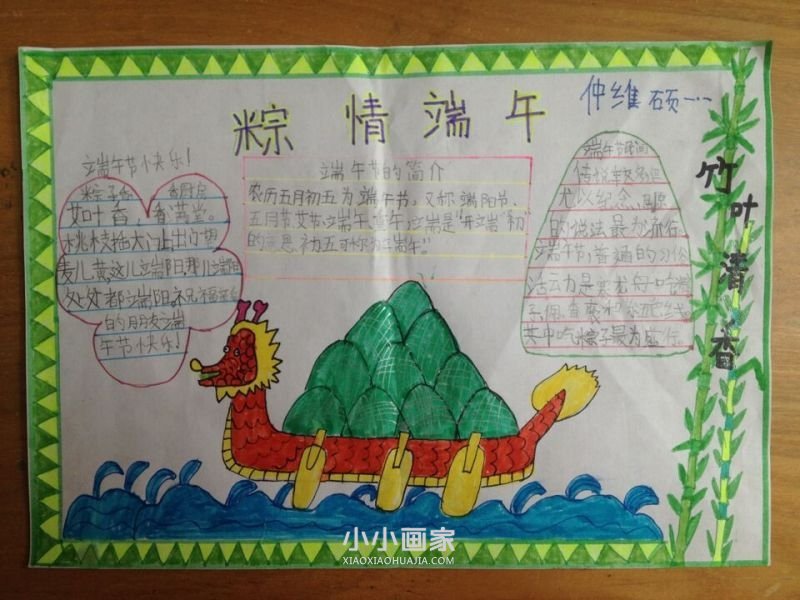 粽情端午
仲维硕
端午节快乐!
粽子香 香厨房
艾叶香,香满堂。
桃枝插大门,出门望
麦儿黄,这儿端阳,那儿端阳
处处都端阳。祝福
的朋友端
午节快乐!
端午节的简介
农历五月初五为端午节,又称端阳节、
五月节、艾节、端午、
的意思,初五可称为端午。”
端午节
传说
尤以纪念屈原
的说法最为流行。
端午节,普遍的习俗
活动
其中吃粽子最为盛行。
竹叶清香
小小画家
XIAOXIAOHUAJIA.COM